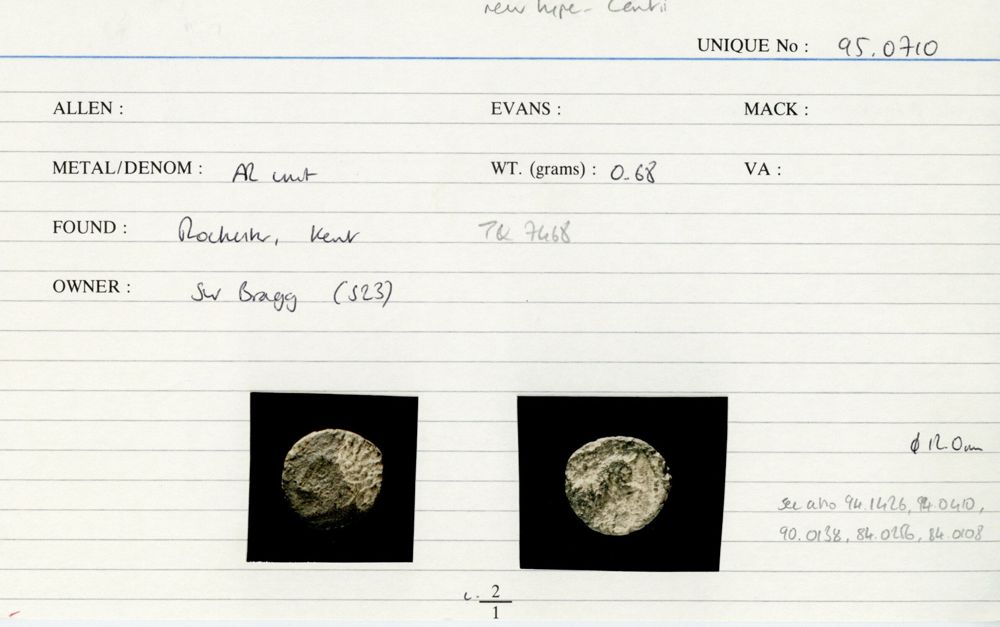 new type - Cantii
UNIQUE No : 95.0710
ALLEN : EVANS : MACK :
METAL/DENOM : AR unit WT. (grams) : 0.68 VA :
FOUND : Rochester, Kent TQ 7468
OWNER : SW Bragg (S23)
ϕ 12.0mm
see also 94.1426, 94.0410,
90.0138, 84.0256, 84.0108
c. 2
1